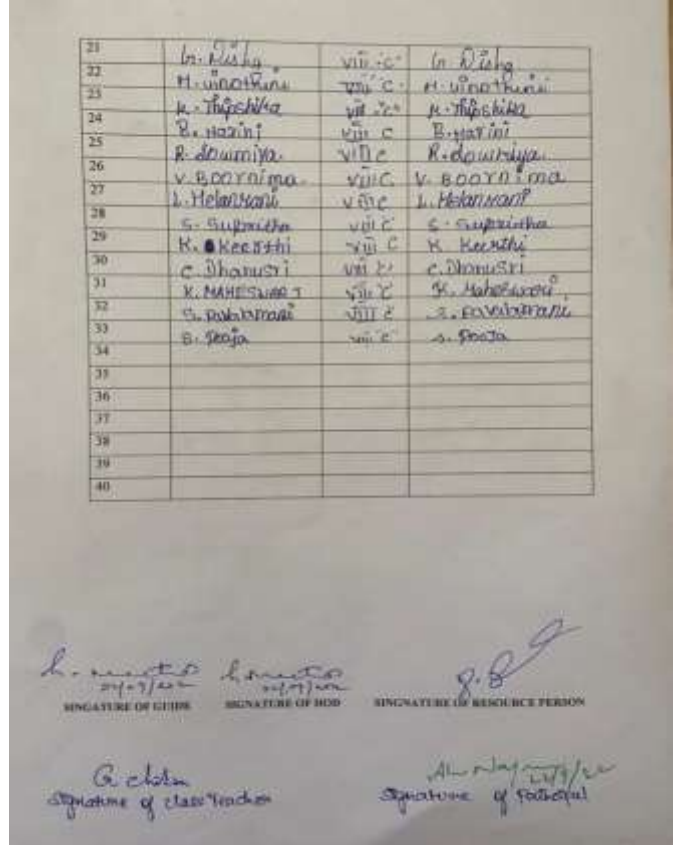 21 G. Disha VIII-'C' G. Disha
22 M. Vinothini VIII 'C' M. Vinothini
23 K. Thipshika VIII 'C' K. Thipshika
24 B. Harini VIII C B. Harini
25 R. Sowmiya VIII C R. Sowmiya
26 V. BOORNIMA VIII C V. BOORNIMA
27 L. Helanrani VIII C L. Helanrani
28 S. Suprintha VIII C S. Suprintha
29 K. Keerthi VIII C K. Keerthi
30 C. Dhanusri VIII C C. Dhanusri
31 K. MAHESWARI VIII C K. Maheswari
32 S. Pavalamani VIII C S. Pavalamani
33 S. Pooja VIII C S. Pooja
34
35
36
37
38
39
40
SINGATURE OF GUIDE SIGNATURE OF HOD SINGNATURE OF RESOURCE PERSON
Signature of class Teacher Signature of